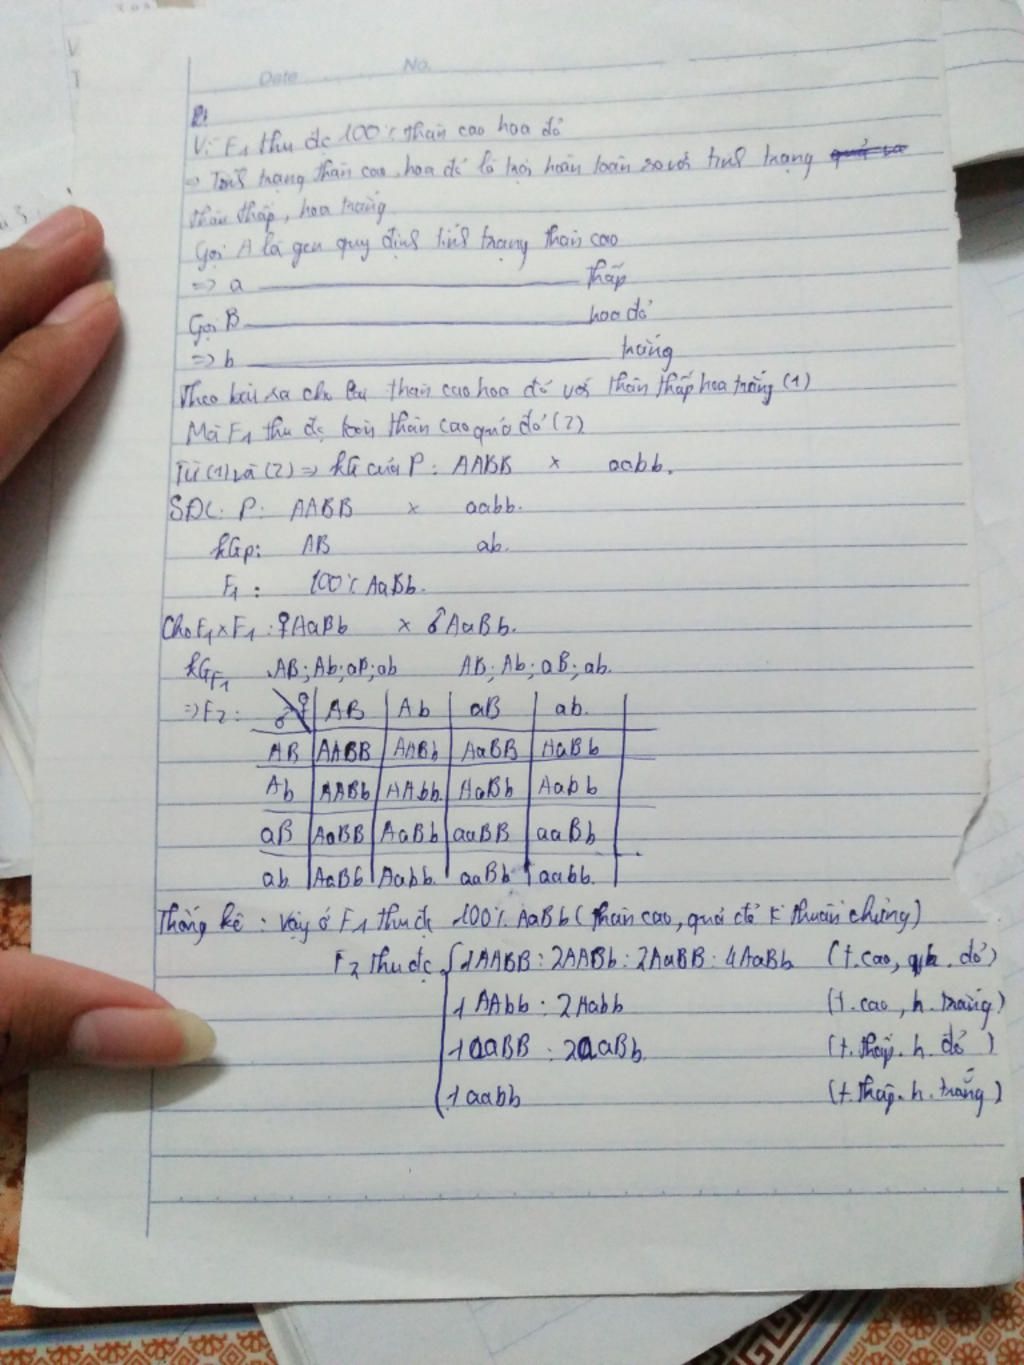 Date No.
Vì F1 thu đc 100% thân cao hoa đỏ
=> Tính trạng thân cao, hoa đỏ là trội hoàn toàn so với tính trạng
thân thấp, hoa trắng
Gọi A là gen quy định tính trạng thân cao
=> a thấp
Gọi B hoa đỏ
=> b trắng
Theo bài ra cho lai thân cao hoa đỏ với thân thấp hoa trắng (1)
Mà F1 thu đc toàn thân cao quả đỏ (2)
Từ (1) và (2) => kG của P: AABB × aabb.
SĐL: P: AABB × aabb.
kGp: AB ab.
F1: 100% AaBb.
Cho F1 × F1: ♀AaBb × ♂AaBb.
kGF1 AB; Ab; aB; ab AB; Ab; aB; ab.
=> F2: ♂ ♀ AB Ab aB ab.
AB AABB AABb AaBB AaBb
Ab AABb AAbb AaBb Aabb
aB AaBB AaBb aaBB aaBb
ab AaBb Aabb. aaBb aabb.
Thống kê: Vậy ở F1 thu đc 100% AaBb (thân cao, quả đỏ k thuần chủng)
F2 thu đc 1AABB : 2AABb : 2AaBB : 4AaBb (t.cao, h. đỏ)
1 AAbb : 2Aabb (t.cao, h. trắng)
1aaBB : 2aaBb. (t.thấp. h. đỏ)
1 aabb (t.thấp. h. trắng)